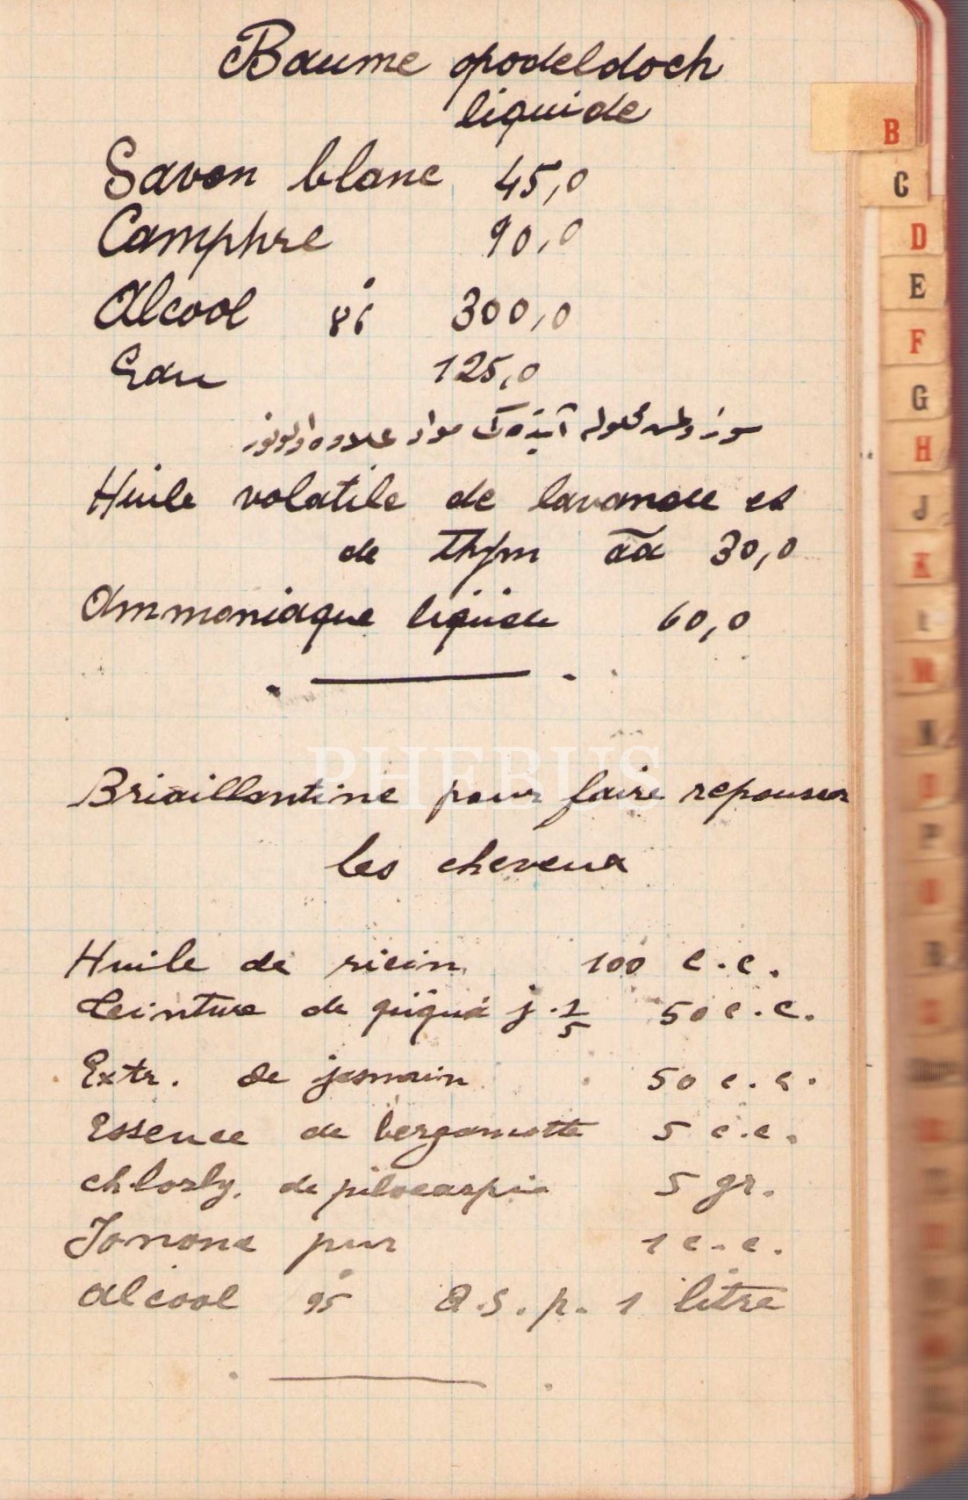 Baume opodeldoch
liquide
Savon blanc 45,0
Camphre 90,0
Alcool 300,0
Eau 125,0
مواد علاوه اولونور
Huile volatile de lavande et
de thym āā 30,0
Ammoniaque liquide 60,0
PHEBUS
Briaillantine pour faire repousser
les cheveux
Huile de ricin 100 c.c.
Teinture de j. 1/5 50 c.c.
Extr. de jasmin 50 c.c.
Essence de bergamotte 5 c.c.
chlorhy. de pilocarpin 5 gr.
Ionone pur 1 c.c.
alcool 95° Q.S.p. 1 litre
B
C
D
E
F
G
H
J
K
L
M
N
O
P
Q
R
S